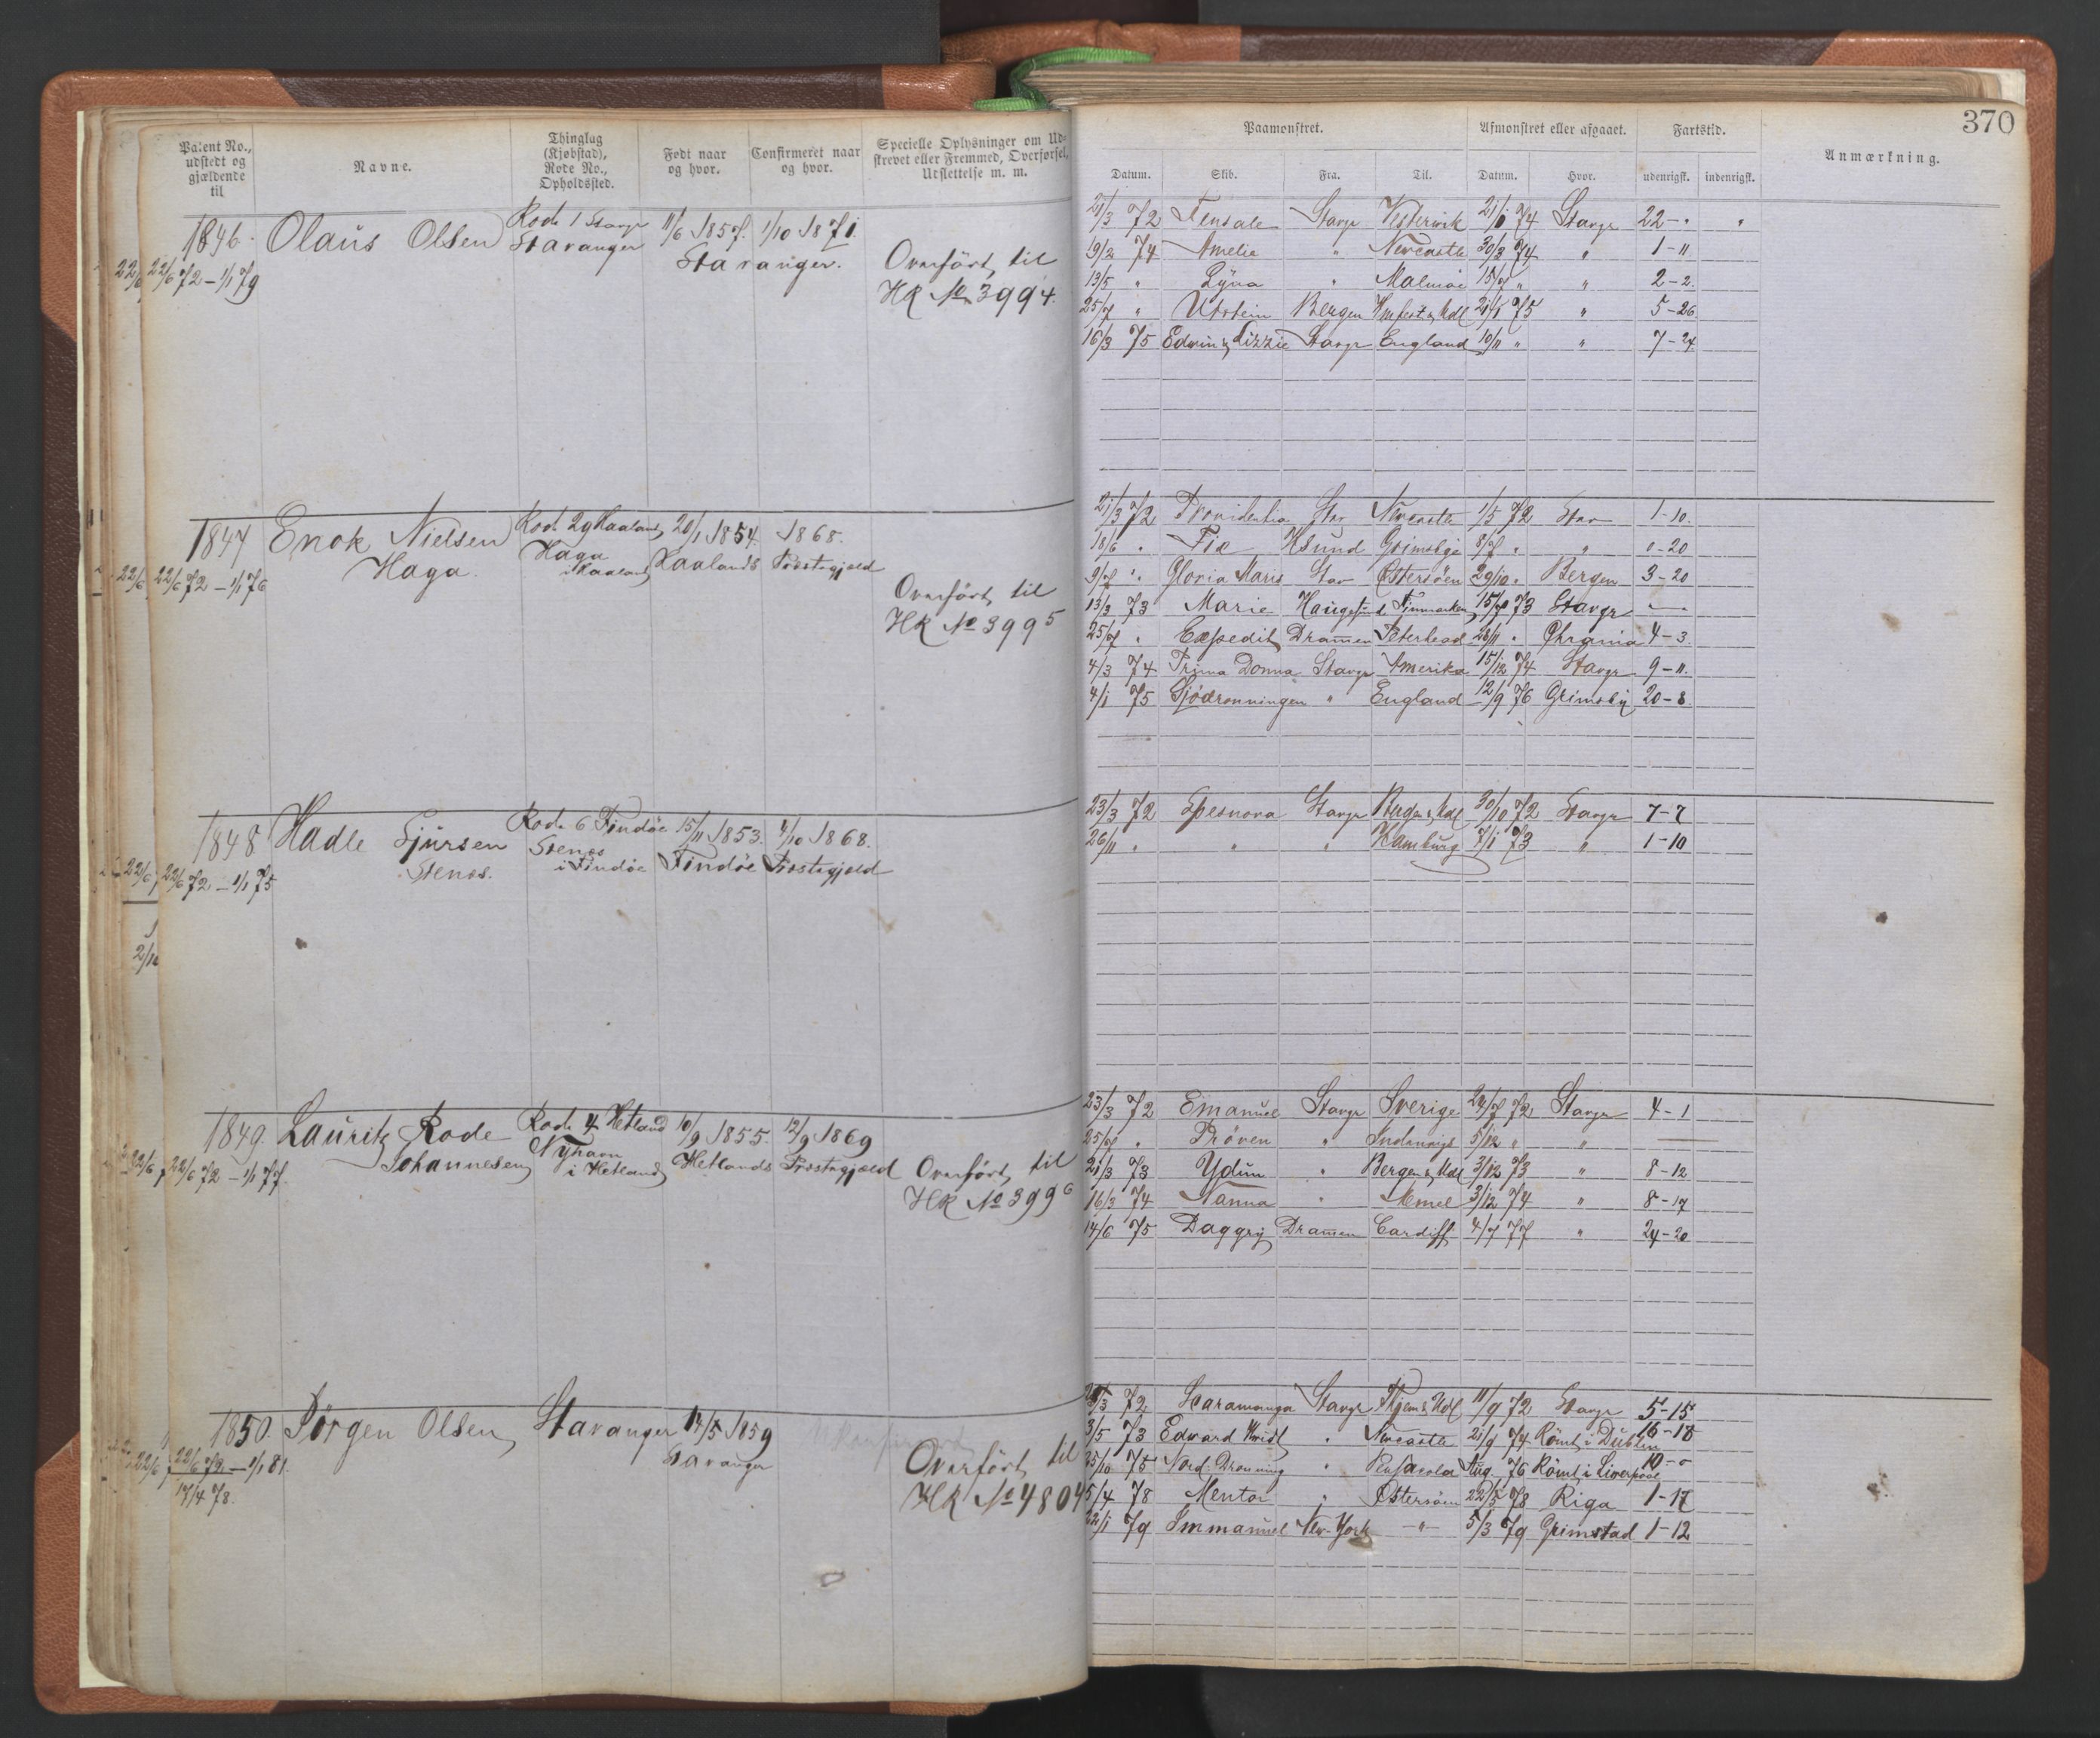 370
Patent No., udstedt og gjældende til
Navne.
Thinglag (Kjøbstad), Rode No., Opholdssted.
Født naar og hvor.
Confirmeret naar og hvor.
Specielle Oplysninger om Udskrevet eller Fremmed, Overførsel, Udslettelse m. m.
Paamønstret.
Afmønstret eller afgaaet.
Fartstid.
Anmærkning.
Datum. Skib. Fra. Til. Datum. Hvor. udenrigsk. indenrigsk.
1846. Olaus Olsen Rode 1 Stavgr 11/6 1857. 1/10 1871.
Stavanger Stavanger.
22/6 72 – 1/1 79
Overført til
HR No 3994.
21/3 72 Stavgr Vestervik 21/1 74 Stavgr 22 – " "
19/2 74 Amelie " Newcastle 30/3 74 " 1 – 11
13/5 " Lyna " Malmöe 15/7 " " 2 – 2.
25/7 " Utstein Bergen 21/1 75 " 5 – 26.
16/3 75 Edwin & Lizzie Stavgr England 10/11 " " 7 – 24
1847 Enok Nielsen Rode 29 Haaland 20/1 1854. 1868.
Haga. Haga i Haaland Haalands Præstegjæld
22/6 72 – 1/1 76
Overført til
HR No 3995
21/3 72 Providentia Stav Newcastle 1/5 72 Stav 1 – 10.
18/6 " Hsund Grimsby 8/7 " " 0 – 20
9/7 " Gloria Maris Stav Østersøen 29/10 " Bergen 3 – 20
13/3 73 Marie Haugesund Finmarken 15/7 73 Stavgr "
25/7 " Expedit Drammen Peterhead 28/11 " Chrania 4 – 3.
4/3 74 Prima Donna Stavgr Amerika 15/12 74 Stavgr 9 – 11.
4/1 75 Sjødronningen " England 12/9 76 Grimsby 20 – 8.
1848 Hadle Sjursen Rode 6 Findøe 15/11 1853. 4/10 1868.
Stenes. Stenes i Findöe Findöe Præstegjæld
22/6 72 – 1/1 75
23/3 72 Spesnova Stavgr 30/10 72 Stavgr 7 – 7
26/11 " " " Hamburg 7/1 73 " 1 – 10
1849. Lauritz Rode Rode 4 Hetland 10/9 1855. 12/9 1869
Johannesen Nyhavn i Hetland Hetlands Præstegjæld
22/6 72 – 1/1 77.
Overført til
HR No 3996
23/3 72 Emanuel Stavgr Sverige 24/7 72 Stavgr 4 – 1
25/7 " Prøven " Indenrigs 5/12 " "
21/3 73 Ydun " Bergen & Udl 3/12 73 " 8 – 12
16/3 74 Nanna " Memel 3/12 74 " 8 – 17
14/6 75 Daggry Drammen Cardiff 4/7 77 " 24 – 20
1850. Jørgen Olsen Stavanger 14/5 1859
Stavanger
22/6 72 – 1/1 81.
17/4 78.
Overført til
HR No 4804
72 Scaramanga Stavgr 11/9 72 Stavgr 5 – 15
3/5 73 Edward " Newcastle 21/9 74 Rømt i Dublin 16 – 18
25/10 75 Nord. Dronning " Pensacola Aug. 76 Rømt i Liverpool 10 – 0
5/4 78 Mentor " Østersøen 22/5 78 Riga 1 – 17
22/1 79 Immanuel New-York – " – 5/3 79 Grimstad 1 – 12